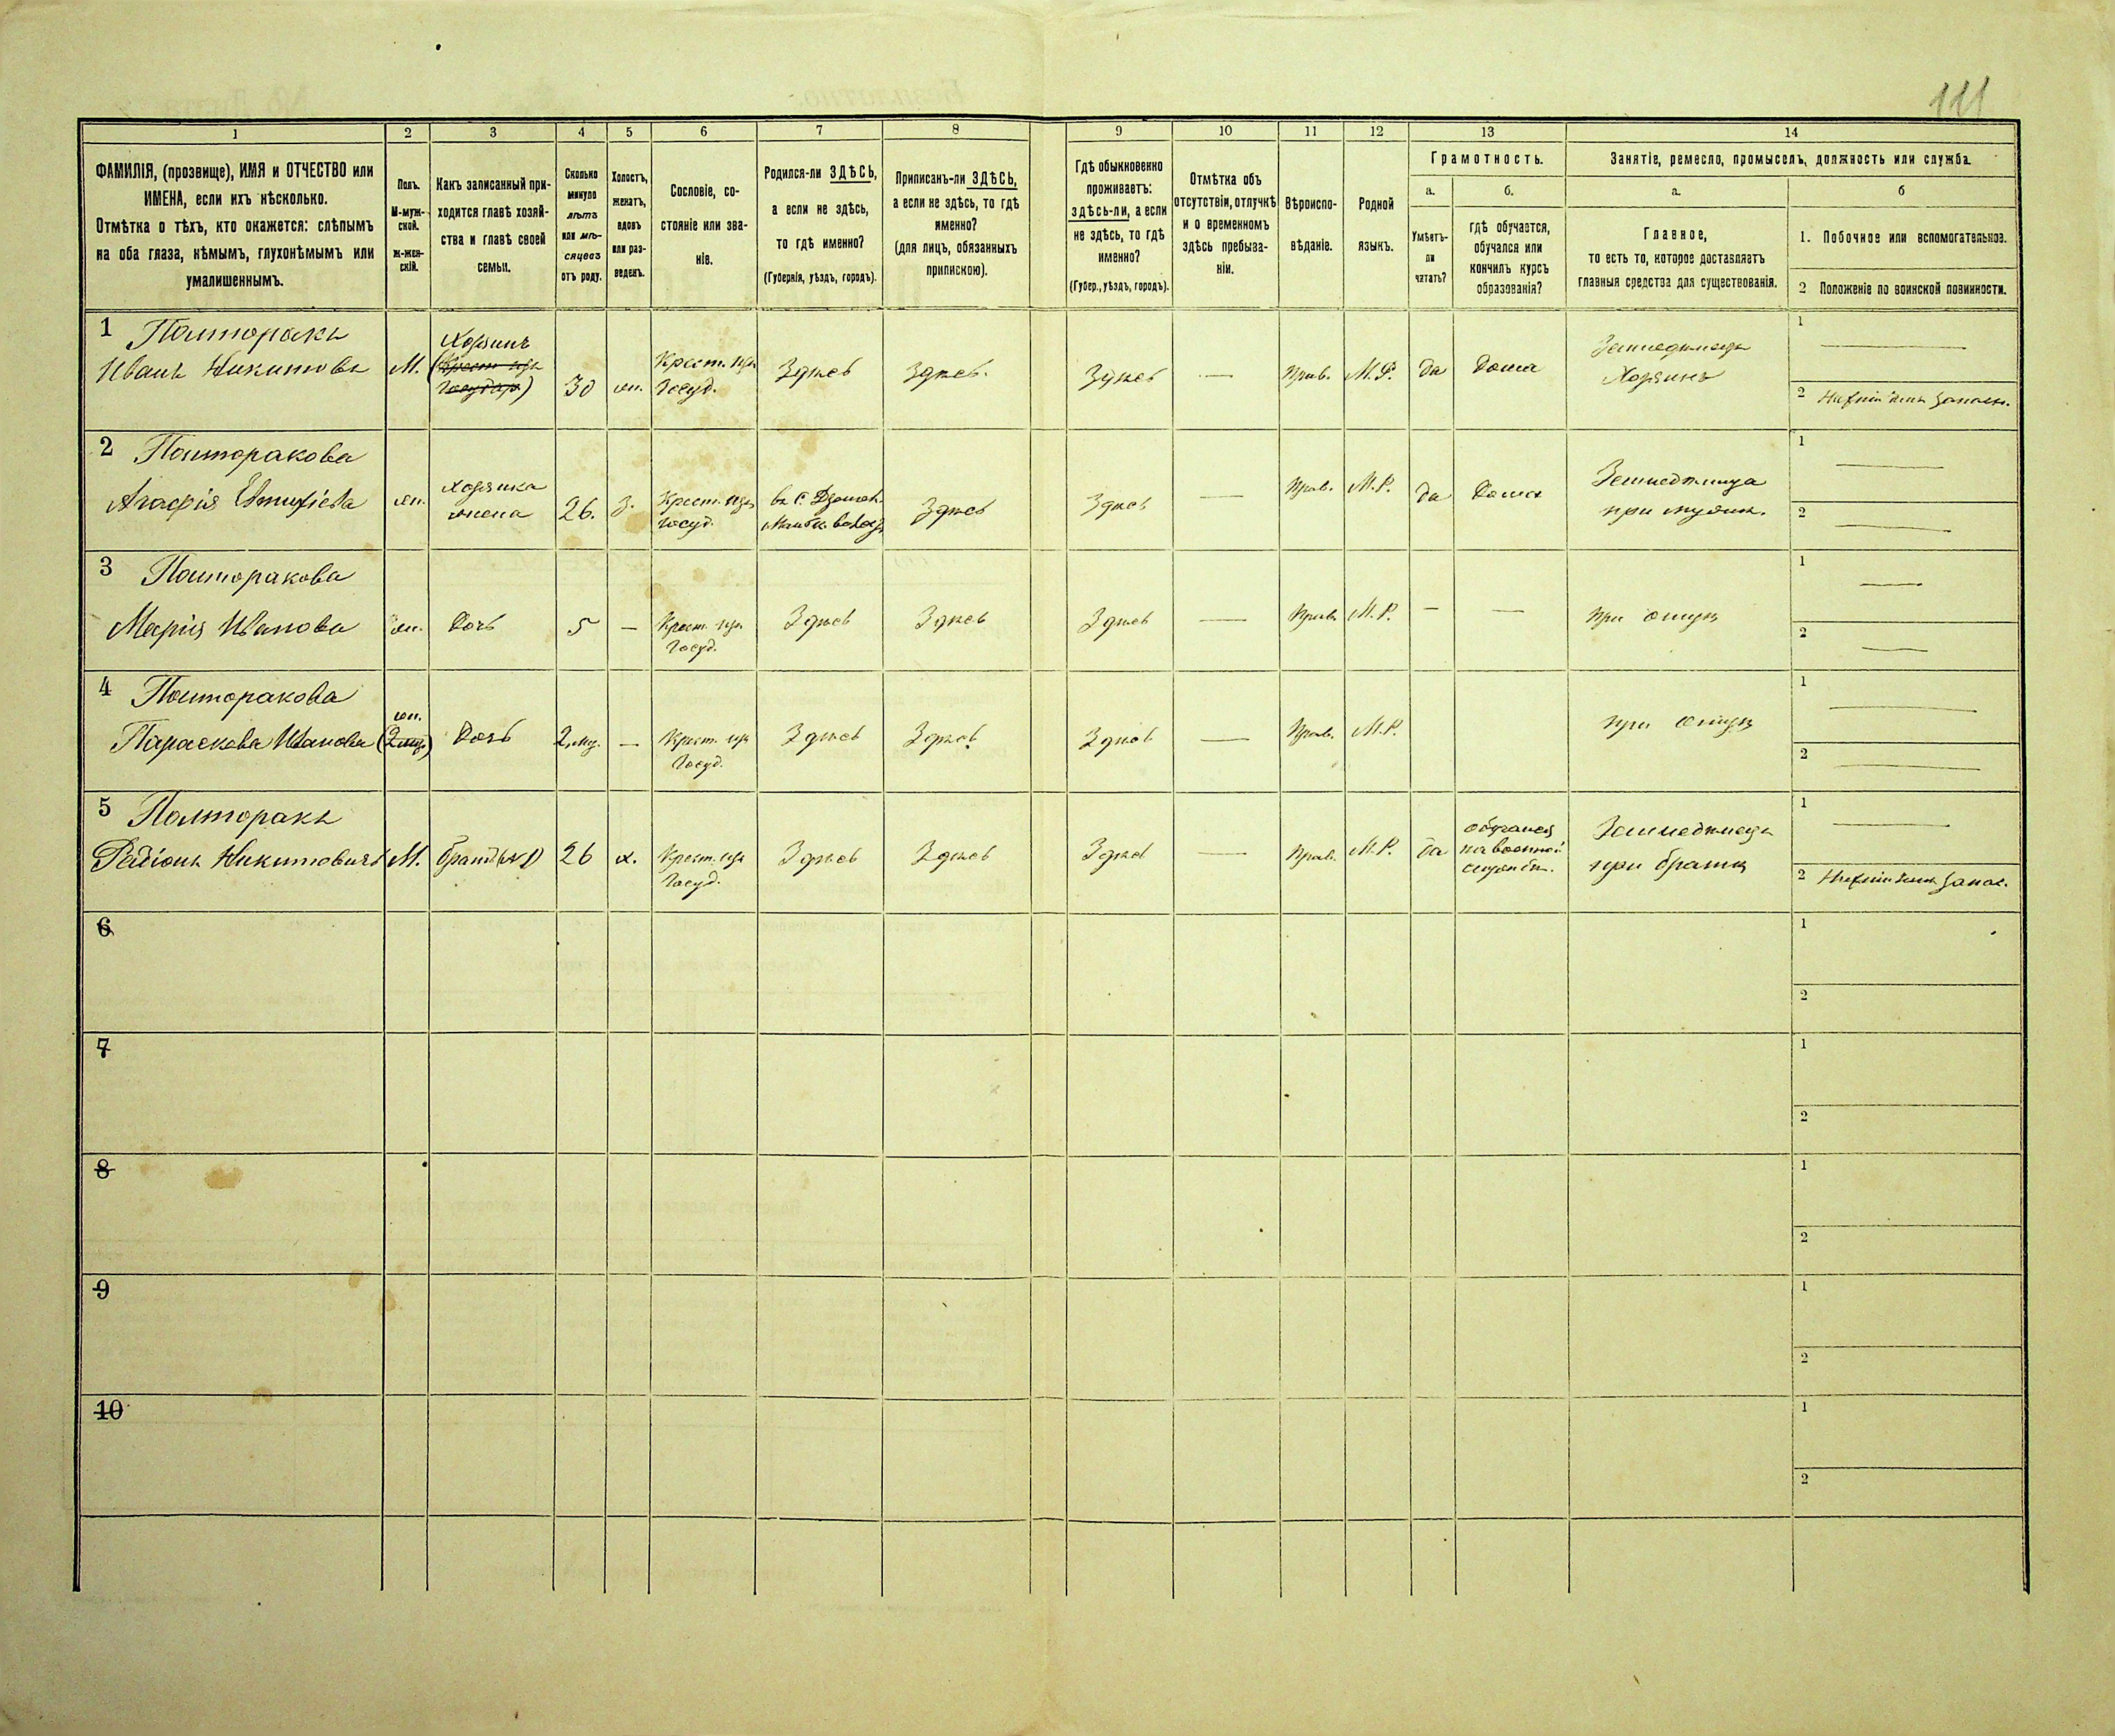 111
1 2 3 4 5 6 7 8 9 10 11 12 13 14
ФАМИЛІЯ, (прозвище), ИМЯ и ОТЧЕСТВО или
ИМЕНА, если ихъ нѣсколько.
Отмѣтка о тѣхъ, кто окажется: слѣпымъ
на оба глаза, нѣмымъ, глухонѣмымъ или
умалишеннымъ.
Полъ.
М-муж-
ской.
ж-жен-
скій.
Какъ записанный при-
ходится главѣ хозяй-
ства и главѣ своей
семьи.
Сколько
минуло
лѣтъ
или мѣ-
сяцевъ
отъ роду.
Холостъ,
женатъ,
вдовъ
или раз-
веденъ.
Сословіе, со-
стояніе или зва-
ніе.
Родился-ли ЗДѢСЬ,
а если не здѣсь,
то гдѣ именно?
(Губернія, уѣздъ, городъ).
Приписанъ-ли ЗДѢСЬ,
а если не здѣсь, то гдѣ
именно?
(для лицъ, обязанныхъ
припискою).
Гдѣ обыкновенно
проживаетъ:
здѣсь-ли, а если
не здѣсь, то гдѣ
именно?
(Губер., уѣздъ, городъ).
Отмѣтка объ
отсутствіи, отлучкѣ
и о временномъ
здѣсь пребыва-
ніи.
Вѣроиспо-
вѣданіе.
Родной
языкъ.
Грамотность.
а.
Умѣетъ-
ли
читать?
б.
гдѣ обучается,
обучался или
кончилъ курсъ
образованія?
Занятіе, ремесло, промыселъ, должность или служба.
а.
Главное,
то есть то, которое доставляетъ
главныя средства для существованія.
б
1. Побочное или вспомогательное.
2 Положеніе по воинской повинности.
1 Полторакъ
Иванъ Никитовъ
М.
Хозяинъ
(Крест. изъ
Государ)
30
жн.
Крест. изъ
Госуд.
Здѣсь
Здѣсь.
Здѣсь
—
Прав.
М. Р.
да
Дома
Земледѣлецъ
Хозяинъ
1 —
2 Нижній чинъ запасн.
2 Полторакова
Агафія
жн.
хозяйка
жена
26.
З.
Крест. изъ
Госуд.
въ С.
Здѣсь
Здѣсь
—
Прав.
М. Р.
да
Дома
Земледѣлица
при мужѣ.
1 —
2 —
3 Полторакова
Марія Иванова
жн.
Дочь
5
—
Крест. изъ
Госуд.
Здѣсь
Здѣсь
Здѣсь
—
Прав.
М. Р.
—
—
при отцѣ
1 —
2 —
4 Полторакова
Параскова Иванова
жн.
(2 мѣс)
Дочь
2 мц.
—
Крест. изъ
Госуд.
Здѣсь
Здѣсь
Здѣсь
—
Прав.
М. Р.
при отцѣ
1 —
2 —
5 Полторакъ
Радіонъ Никитовичъ
М.
братъ (№ 1)
26
х.
Крест. изъ
Госуд.
Здѣсь
Здѣсь
Здѣсь
—
Прав.
М. Р.
да
обучался
на военной
службѣ.
Земледѣлецъ
при братѣ
1 —
2 Нижній чинъ запас.
6
1
2
7
1
2
8
1
2
9
1
2
10
1
2